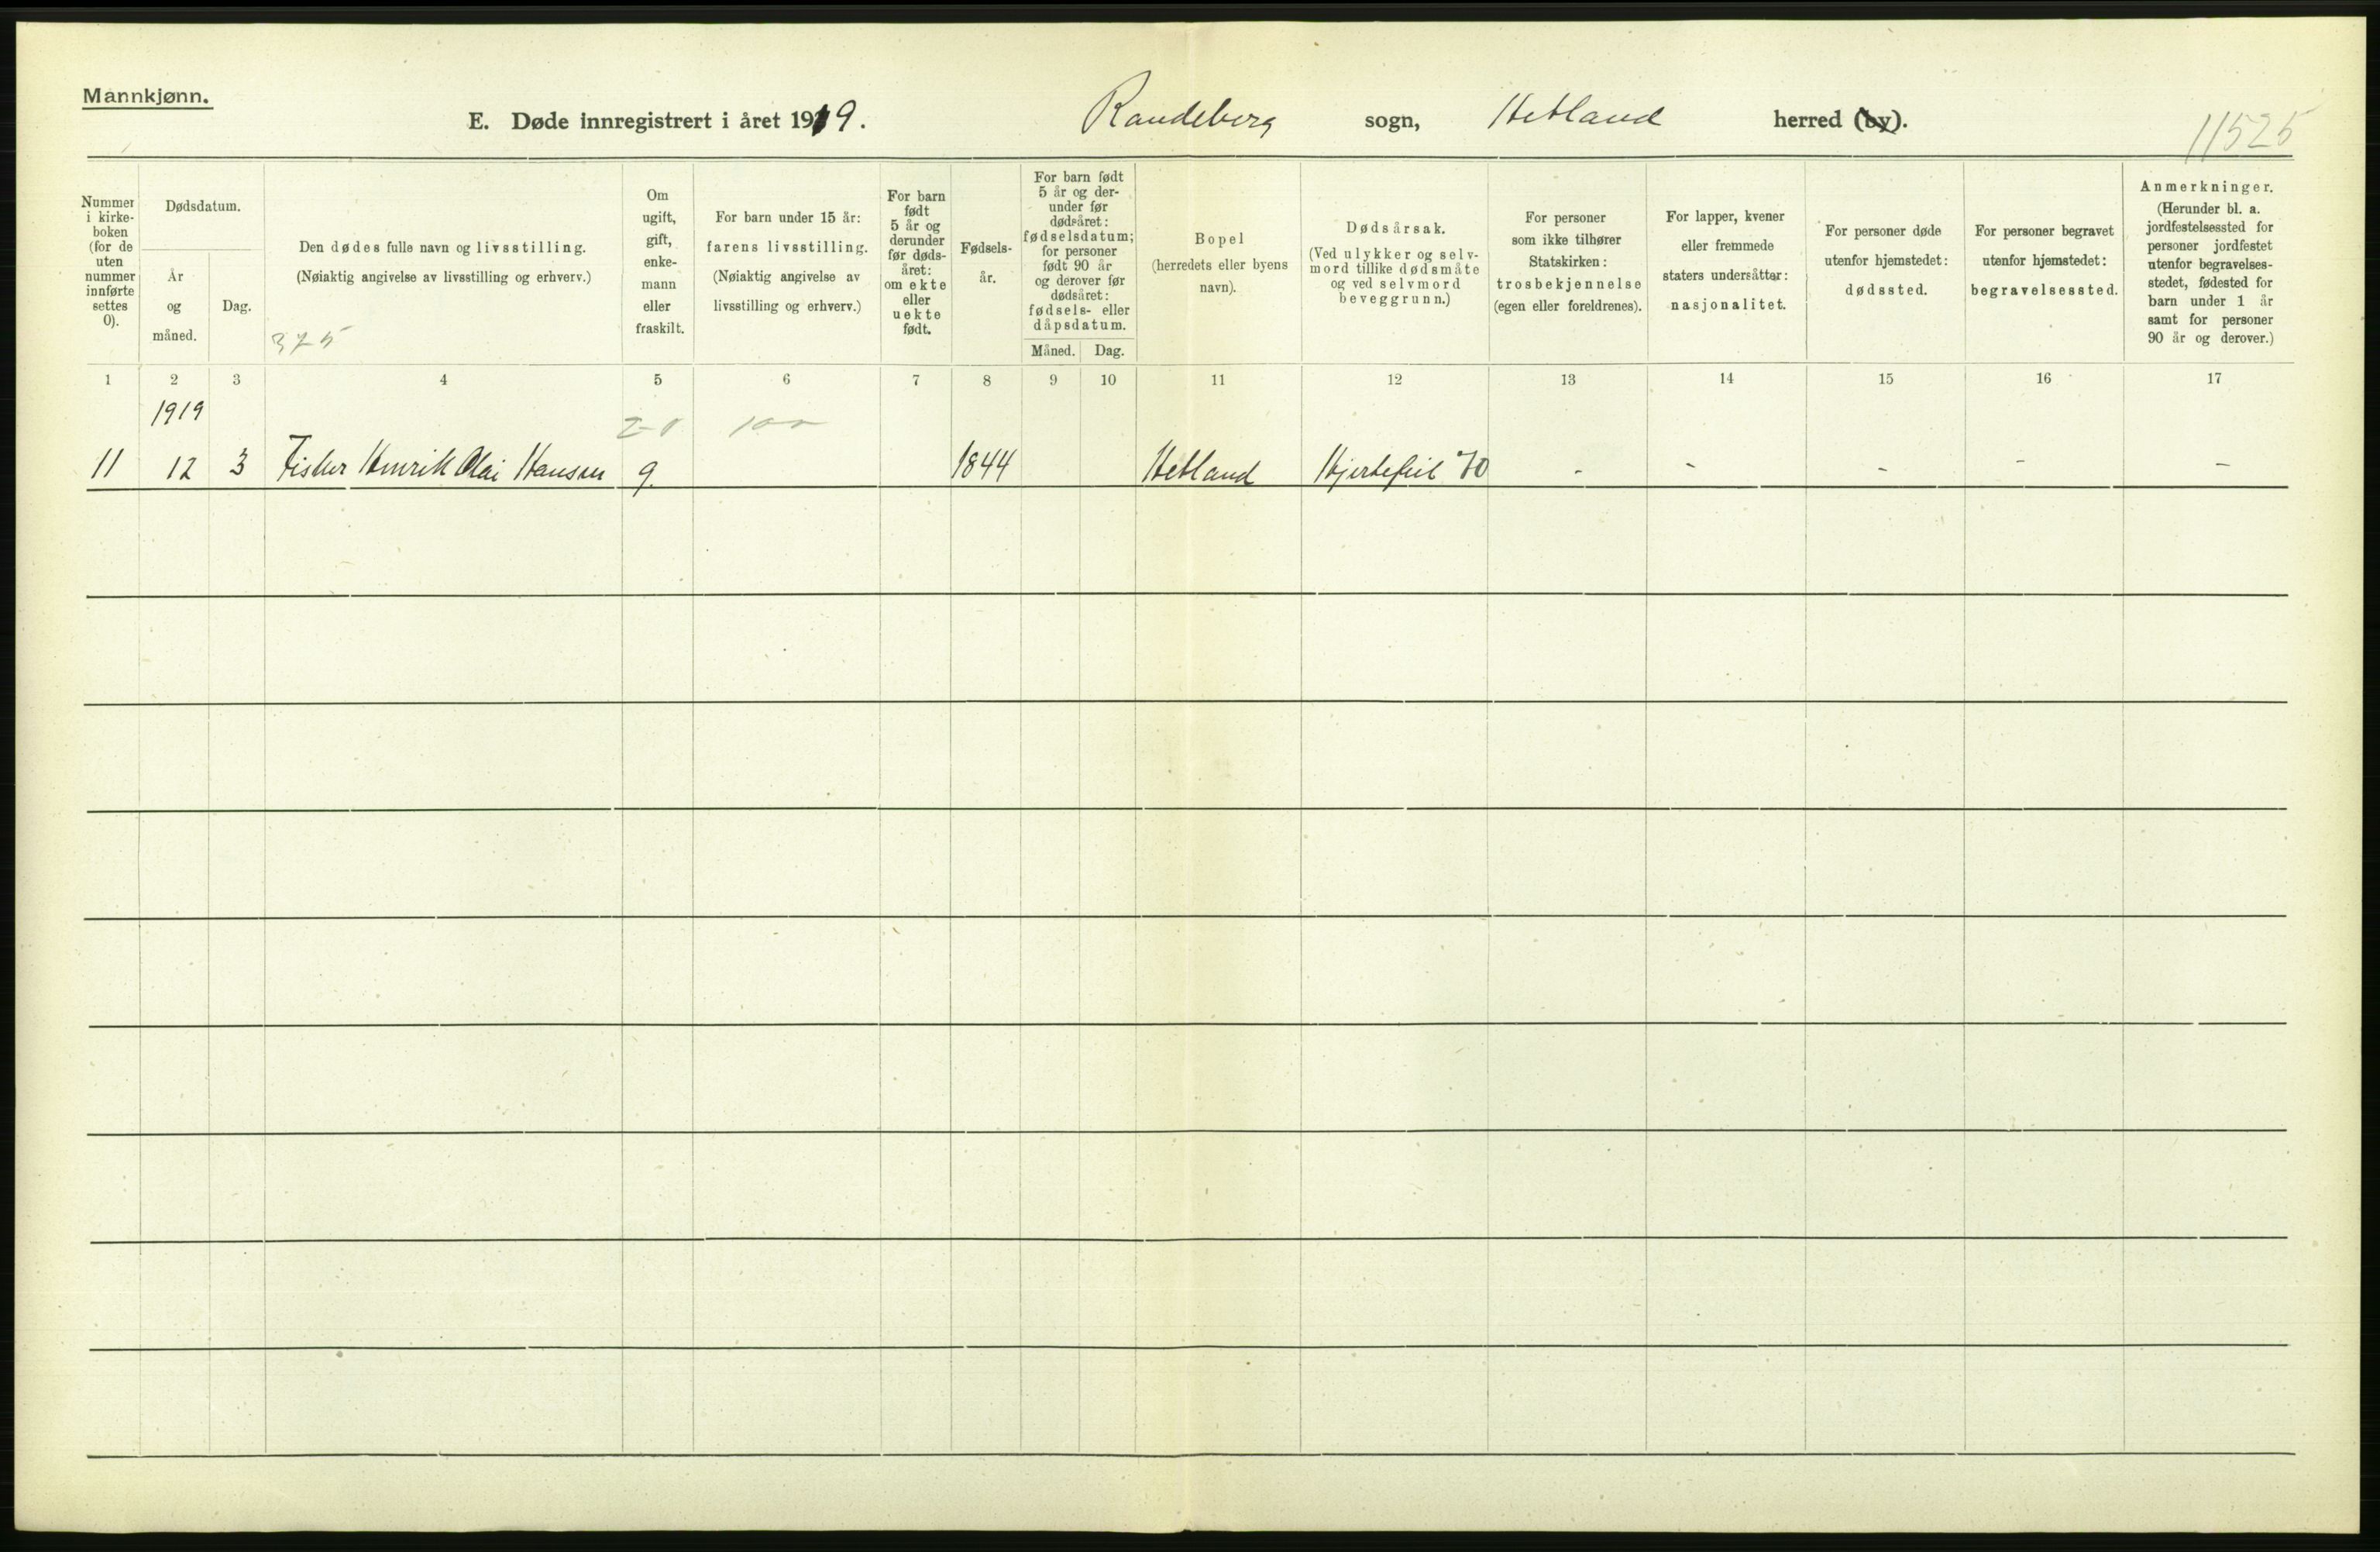 Mannkjønn.
E. Døde innregistrert i året 1919. Randeberg sogn, Hetland herred (by).
11525
Nummer i kirke-boken (for de uten nummer innførte settes 0).
Dødsdatum.
År og måned.
Dag.
Den dødes fulle navn og livsstilling.
(Nøiaktig angivelse av livsstilling og erhverv.)
375
Om ugift, gift, enke-mann eller fraskilt.
For barn under 15 år:
farens livsstilling.
(Nøiaktig angivelse av
livsstilling og erhverv.)
For barn født 5 år og derunder før døds-året: om ekte eller uekte født.
Fødsels-
år.
For barn født 5 år og der-under før dødsåret: fødselsdatum; for personer født 90 år og derover før dødsåret: fødsels- eller dåpsdatum.
Måned. Dag.
Bopel
(herredets eller byens
navn).
Dødsårsak.
(Ved ulykker og selv-
mord tillike dødsmåte
og ved selvmord
beveggrunn.)
For personer
som ikke tilhører
Statskirken:
trosbekjennelse
(egen eller foreldrenes).
For lapper, kvener
eller fremmede
staters undersåtter:
nasjonalitet.
For personer døde
utenfor hjemstedet:
dødssted.
For personer begravet
utenfor hjemstedet:
begravelsessted.
Anmerkninger.
(Herunder bl. a.
jordfestelsessted for
personer jordfestet
utenfor begravelses-
stedet, fødested for
barn under 1 år
samt for personer
90 år og derover.)
1 2 3 4 5 6 7 8 9 10 11 12 13 14 15 16 17
1919
100
11 12 3 Fisker Henrik Olai Hansen g. 1844 Hetland Hjertefeil 70 - - - - -